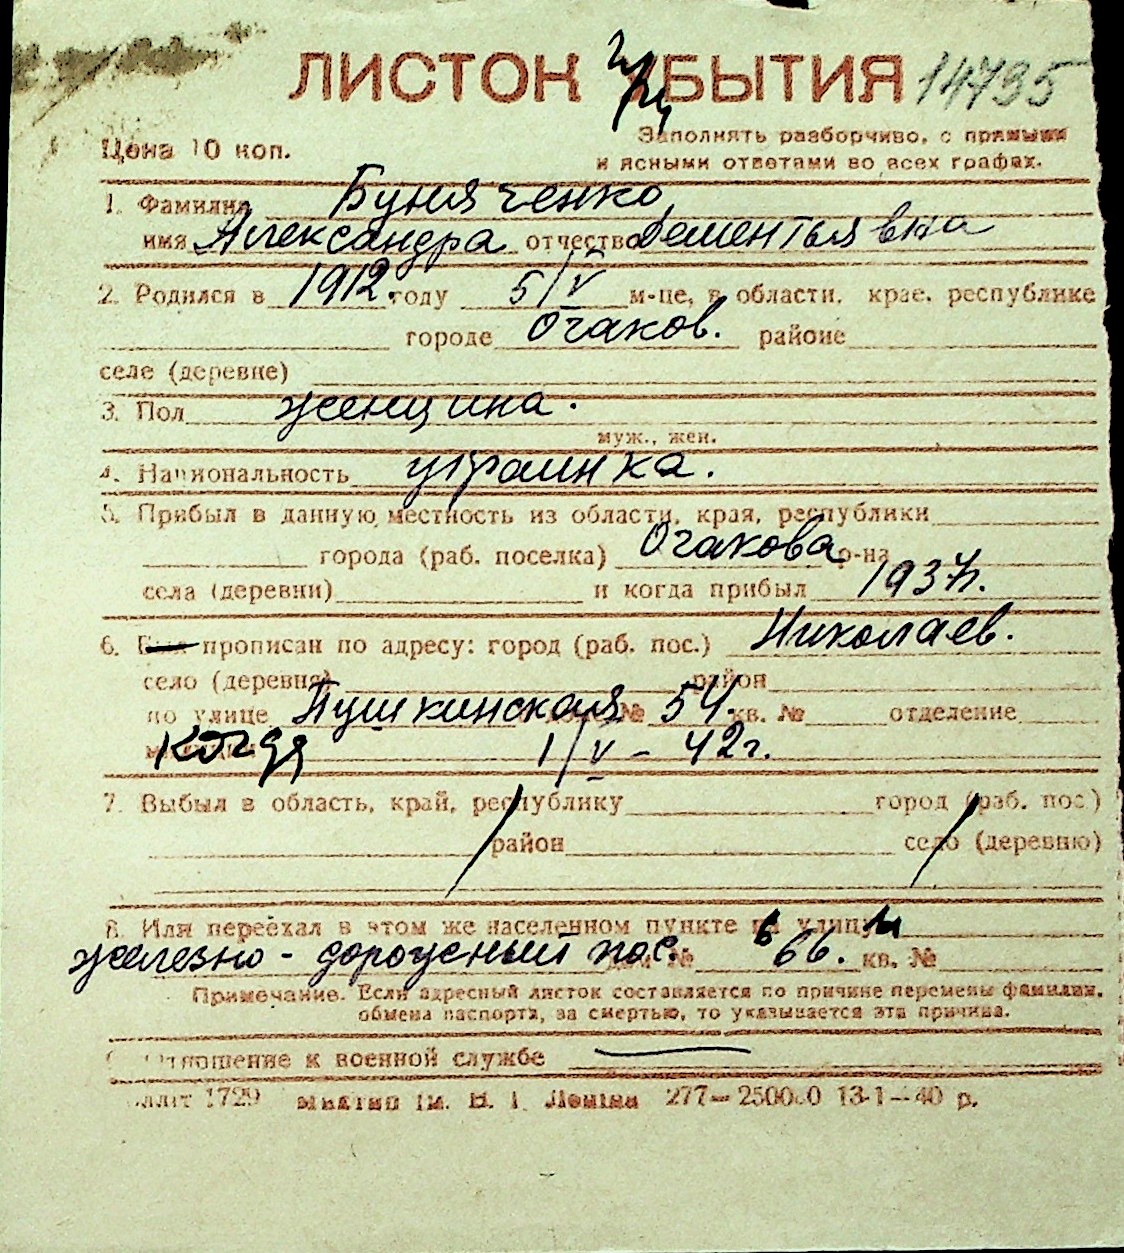 ЛИСТОК УБЫТИЯ 14795
Цена 10 коп.
Заполнять разборчиво, с прямыми
и ясными ответами во всех графах.
1. Фамилия Буняченко
имя Александра отчество Дементьявна
2. Родился в 1912. году 5/V м-це, в области, крае, республике
городе Очаков. районе
селе (деревне)
3. Пол женщина.
муж., жен.
4. Национальность украинка.
5. Прибыл в данную местность из области, края, республики
города (раб. поселка) Очакова р-на
села (деревни) и когда прибыл 1937г.
6. Был прописан по адресу: город (раб. пос.) Николаев.
село (деревня) район
по улице Пушкинская № 54. кв. № отделение
когда 1/V – 42г.
7. Выбыл в область, край, республику город (раб. пос.)
район село (деревню)
8. Или переехал в этом же населенном пункте на улицу
железно-дорожный пос. дом № 66. кв. №
Примечание. Если адресный листок составляется по причине перемены фамилии,
обмена паспорта, за смертью, то указывается эта причина.
9. Отношение к военной службе
1729 ім. В. І. Леніна 277—25000 13-1—40 р.